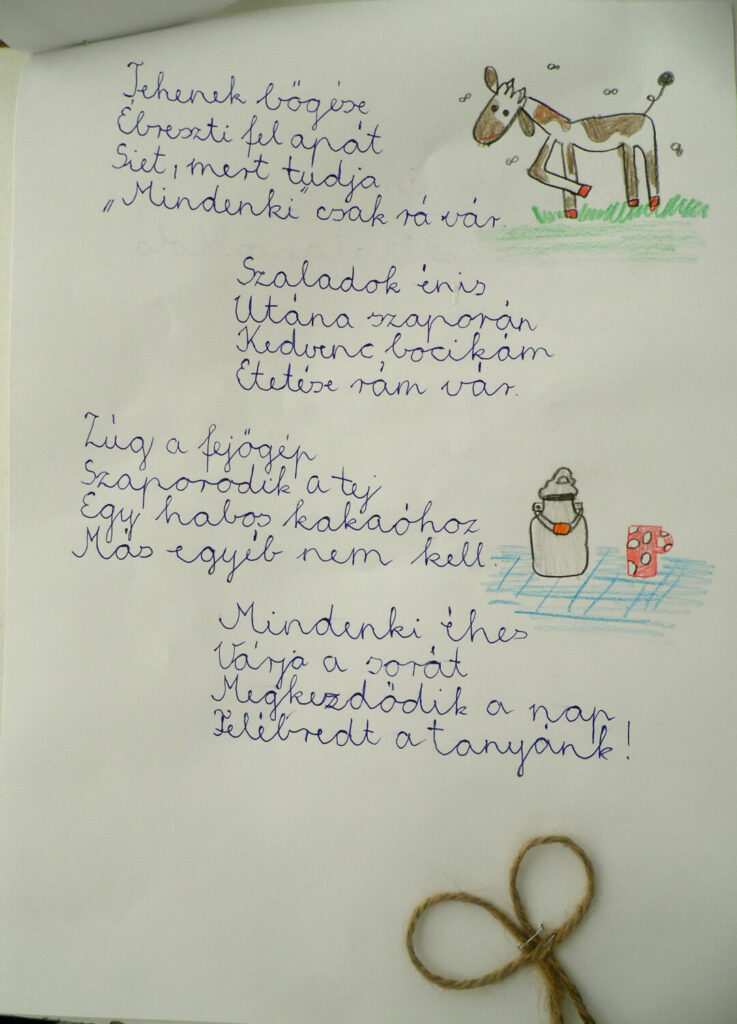 Tehenek bőgése
Ébreszti fel apát
Siet, mert tudja
„Mindenki" csak rá vár.
Szaladok énis
Utána szaporán
Kedvenc bocikám
Etetése rám vár.
Zúg a fejőgép
Szaporodik a tej
Egy habos kakaóhoz
Más egyéb nem kell.
Mindenki éhes
Várja a sorát
Megkezdődik a nap
Felébredt a tanyánk!